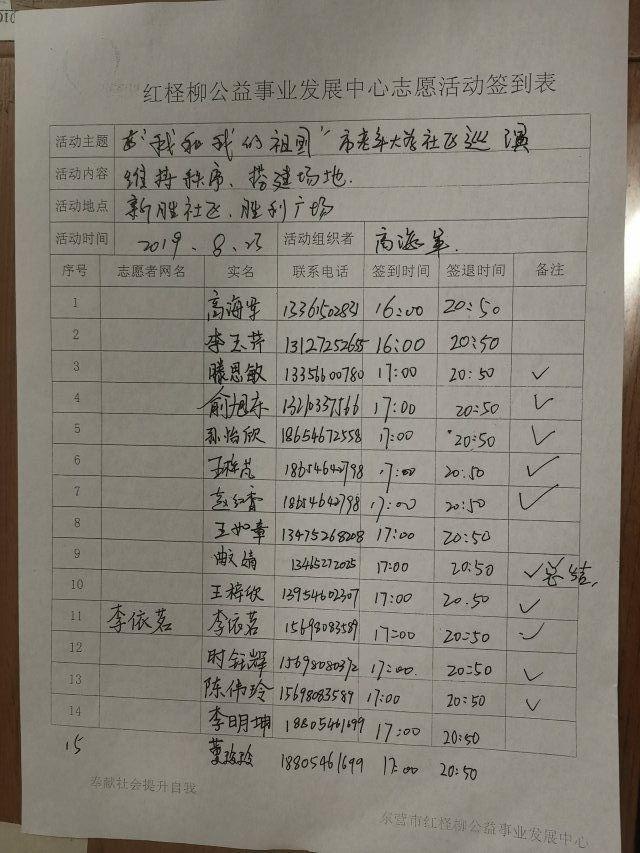 红柽柳公益事业发展中心志愿活动签到表
活动主题 "我和我的祖国" 市老年大学社区巡演
活动内容 维持秩序、搭建场地.
活动地点 新胜社区、胜利广场
活动时间 2019.8.23 活动组织者 高海军.
序号 志愿者网名 实名 联系电话 签到时间 签退时间 备注
1 高海军 13361502831 16:00 20:50
2 李玉芹 13127252655 16:00 20:50
3 滕思敏 13356600780 17:00 20:50 ✓
4 俞旭东 17:00 20:50 ✓
5 孙怡欣 18654672558 17:00 20:50 ✓
6 18654640798 17:00 20:50 ✓
7 赵红香 18654640798 17:00 20:50 ✓
8 王如章 13475268208 17:00 20:50
9 曲文婧 13465272025 17:00 20:50 ✓总结.
10 王梓欣 13954602307 17:00 20:50 ✓
11 李依茗 李依茗 15698083589 17:00 20:50 ✓
12 时钰辉 15698080372 17:00 20:50 ✓
13 陈伟玲 15698083589 17:00 20:50 ✓
14 李明坤 18805461699 17:00 20:50
15 18805461699 17:00 20:50
奉献社会提升自我
东营市红柽柳公益事业发展中心